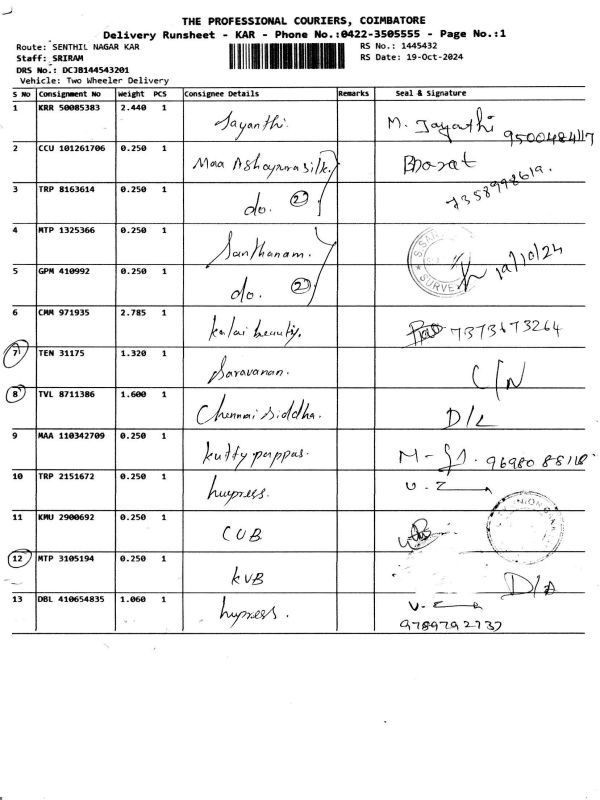 THE PROFESSIONAL COURIERS, COIMBATORE
Delivery Runsheet - KAR - Phone No.:0422-3505555 - Page No.:1
Route: SENTHIL NAGAR KAR RS No.: 1445432
Staff: SRIRAM RS Date: 19-Oct-2024
DRS No.: DCJB144543201
Vehicle: Two Wheeler Delivery
S No Consignment No Weight PCS Consignee Details Remarks Seal & Signature
1 KRR 50085383 2.440 1 Jayanthi. M. Jayathi 9500484117
2 CCU 101261706 0.250 1 Maa Ashapura silk. Bharat
3 TRP 8163614 0.250 1 do. 2 7358998619.
4 MTP 1325366 0.250 1 Santhanam.
5 GPM 410992 0.250 1 do. 2 19/10/24
6 CMM 971935 2.785 1 kalai beauty. 7373673264
7 TEN 31175 1.320 1 Saravanan. C/N
8 TVL 8711386 1.600 1 Chennai Siddha. D/L
9 MAA 110342709 0.250 1 kutty pappas. 9698088118
10 TRP 2151672 0.250 1
11 KMU 2900692 0.250 1 CUB
12 MTP 3105194 0.250 1 KVB
13 DBL 410654835 1.060 1
9789792737